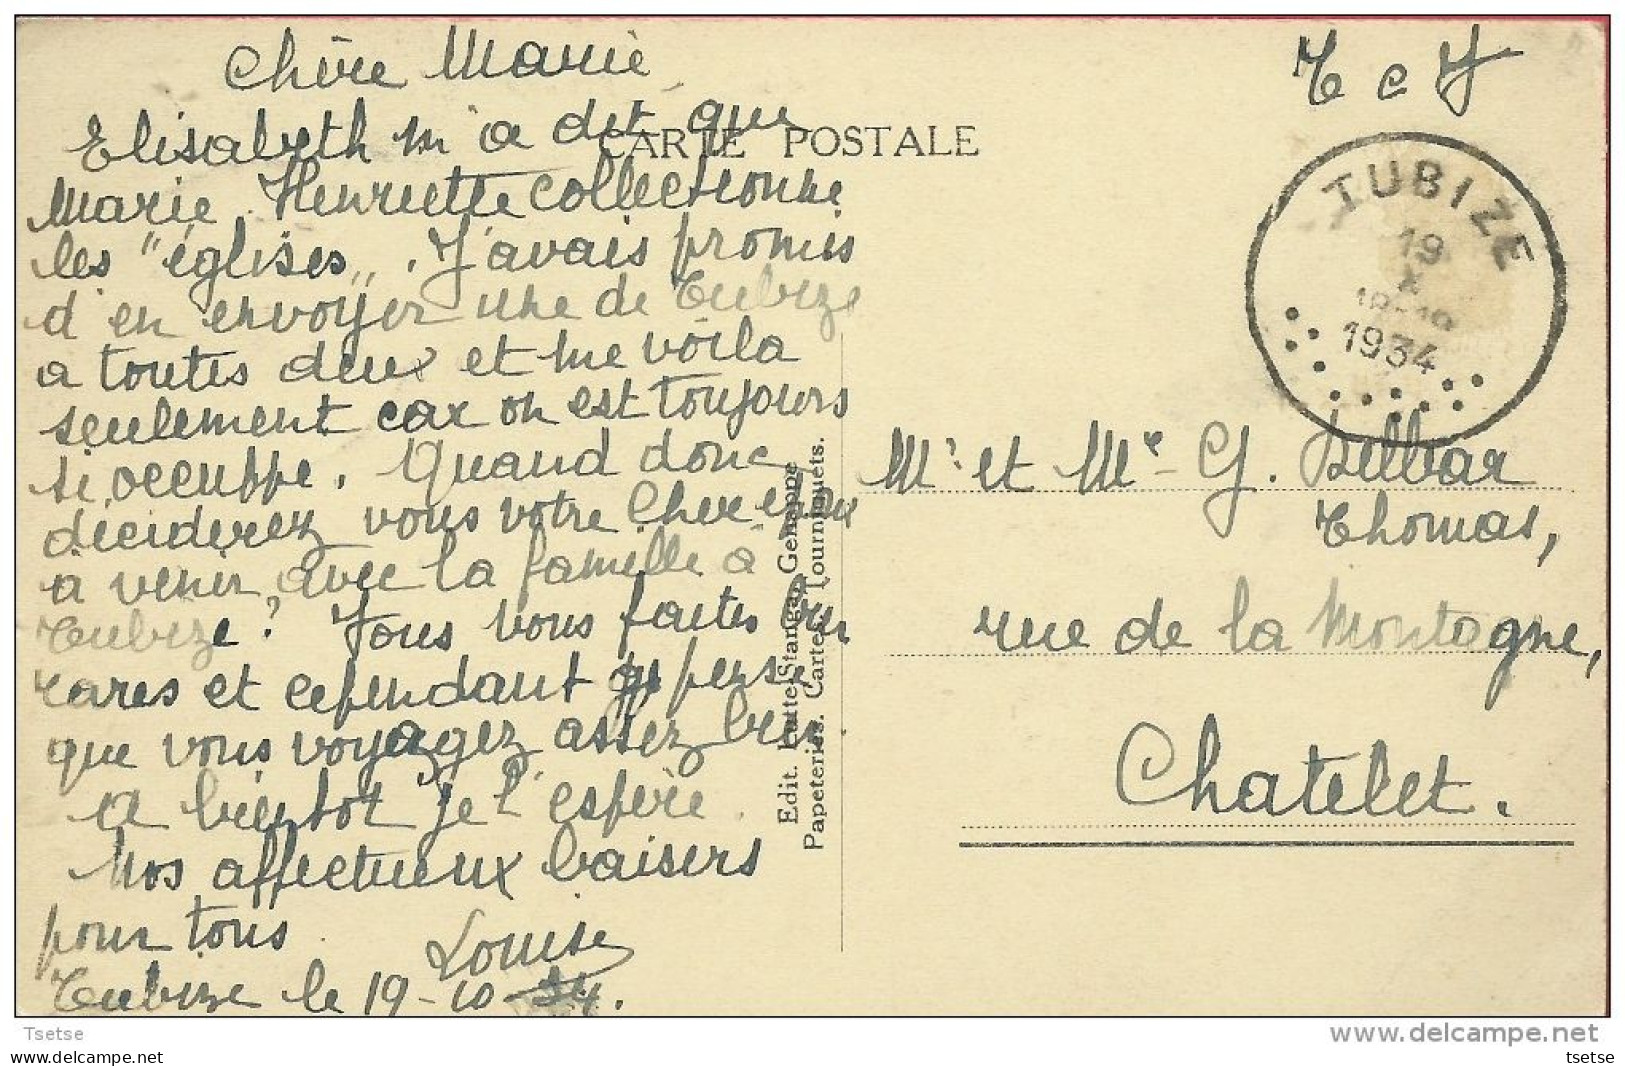 Chère Marie
Elisabeth m'a dit que
Marie Henriette collectionne
les "églises". J'avais promis
d'en envoyer une de Tubize
a toutes deux et me voila
seulement car on est toujours
si occuppé. Quand donc
déciderez vous votre cher époux
à venir, avec la famille à
Tubize? Vous vous faites bien
rares et cependant je pense
que vous voyagez assez bien.
A bientot je l'espère.
Nos affectueux baisers
pour tous. Louise
Tubize le 19-10-34.
CARTE POSTALE
Edit. Lutte-Stanga, Genappe
Papeteries. Cartes, Tourniquets.
T C Y
TUBIZE
19
X
18-19
1934
Mr et Me - G. Delbar
Thomas,
rue de la Montagne,
Chatelet.
Tsetse
delcampe.net
tsetse
tsetse